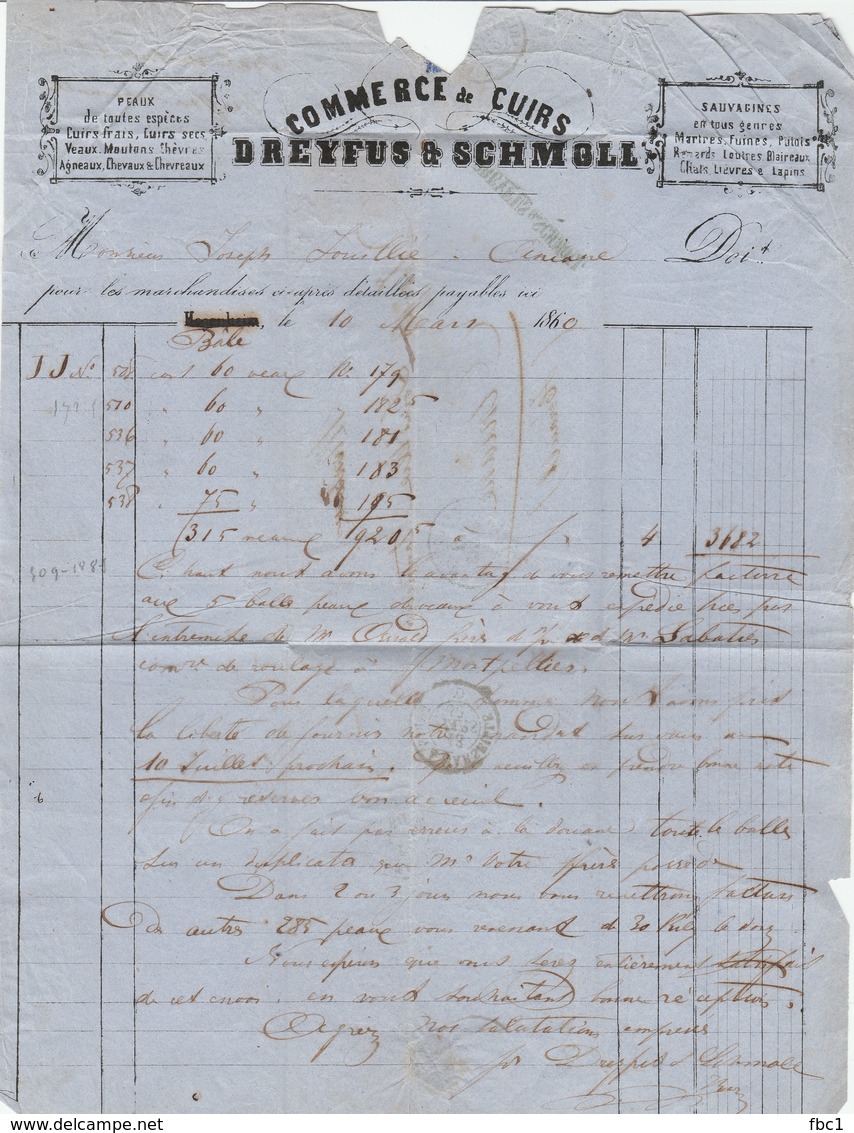 COMMERCE de CUIRS
DREYFUS & SCHMOLL
PEAUX
de toutes espèces
Cuirs frais, Cuirs secs,
Veaux, Moutons, Chèvres
Agneaux, Chevaux & Chevreaux
SAUVAGINES
en tous genres
Martres, Fuines, Putois
Renards Loutres, Blaireaux
Chats, Lièvres & Lapins
Monsieur Joseph Aniane Doit
pour les marchandises ci-après détaillées payables ici
le 10 Mars 1860
Bâle
JJ No. 60 veaux No. 179
510 " 60 " 182 5
536 " 60 " 181
537 " 60 " 183
538 " 75 " 195
315 veaux 920 5 à fr 4 3682
Ci haut nous avons l'avantage de vous remettre facture
aux 5 balles peaux de veaux à vous expédié
l'entremise de Mr Oswald frères d'ici & de Mr Labaties
de roulage à Montpellier
Pour laquelle somme nous avons pris
la liberté de fournir notre mandat sur vous au
10 Juillet prochain. veuillez en prendre bonne note
afin de réserver bon accueil.
(On a fait par erreur à la douane) toute le balles
sur un duplicata que Mr Votre frère possède
Dans 2 ou 3 jours nous vous remettrons facture
des autres 285 peaux vous venant de 20 Kilg le douz
Nous espérons que vous serez entièrement satisfait
de cet envoi, en vous souhaitant bonne réception.
Agréez nos salutations empressées
pr Dreyfus & Schmoll
6
fbc1